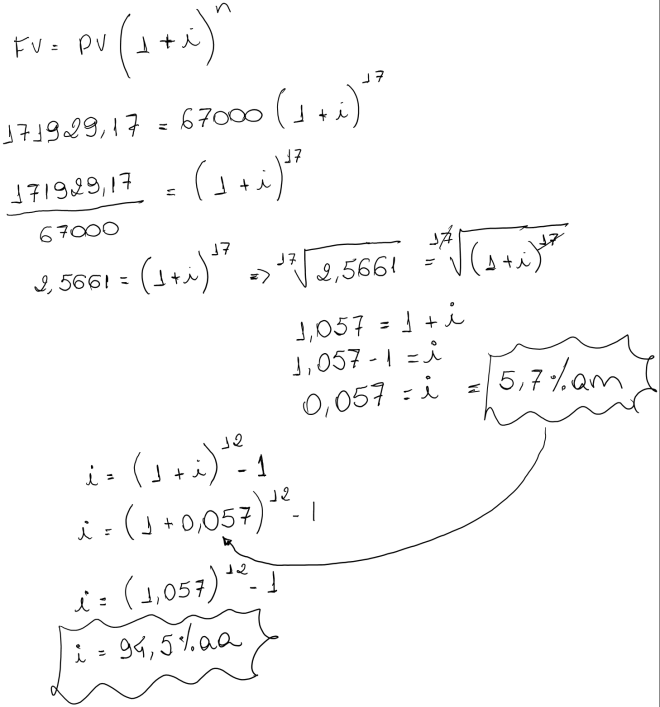 FV = PV (1 + i)^n
171929,17 = 67000 (1 + i)^17
171929,17 / 67000 = (1 + i)^17
2,5661 = (1+i)^17 => 17√2,5661 = 17√(1+i)^17
1,057 = 1 + i
1,057 - 1 = i
0,057 = i = 5,7%am
i = (1 + i)^12 - 1
i = (1 + 0,057)^12 - 1
i = (1,057)^12 - 1
i = 94,5%aa